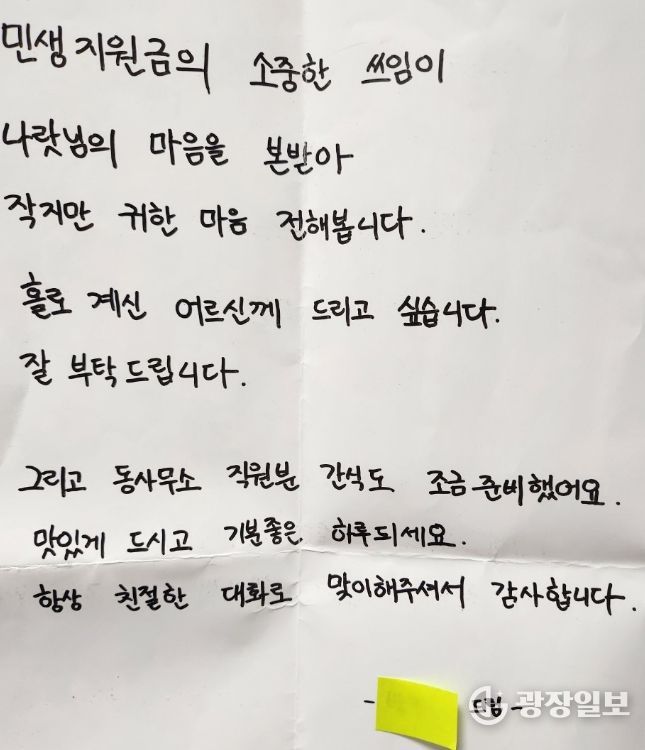 민생지원금의 소중한 쓰임이
나랏님의 마음을 본받아
작지만 귀한 마음 전해봅니다.
홀로 계신 어르신께 드리고 싶습니다.
잘 부탁드립니다.
그리고 동사무소 직원분 간식도 조금 준비했어요.
맛있게 드시고 기분좋은 하루되세요.
항상 친절한 대화로 맞이해주셔서 감사합니다.
- 드림 -
광장일보